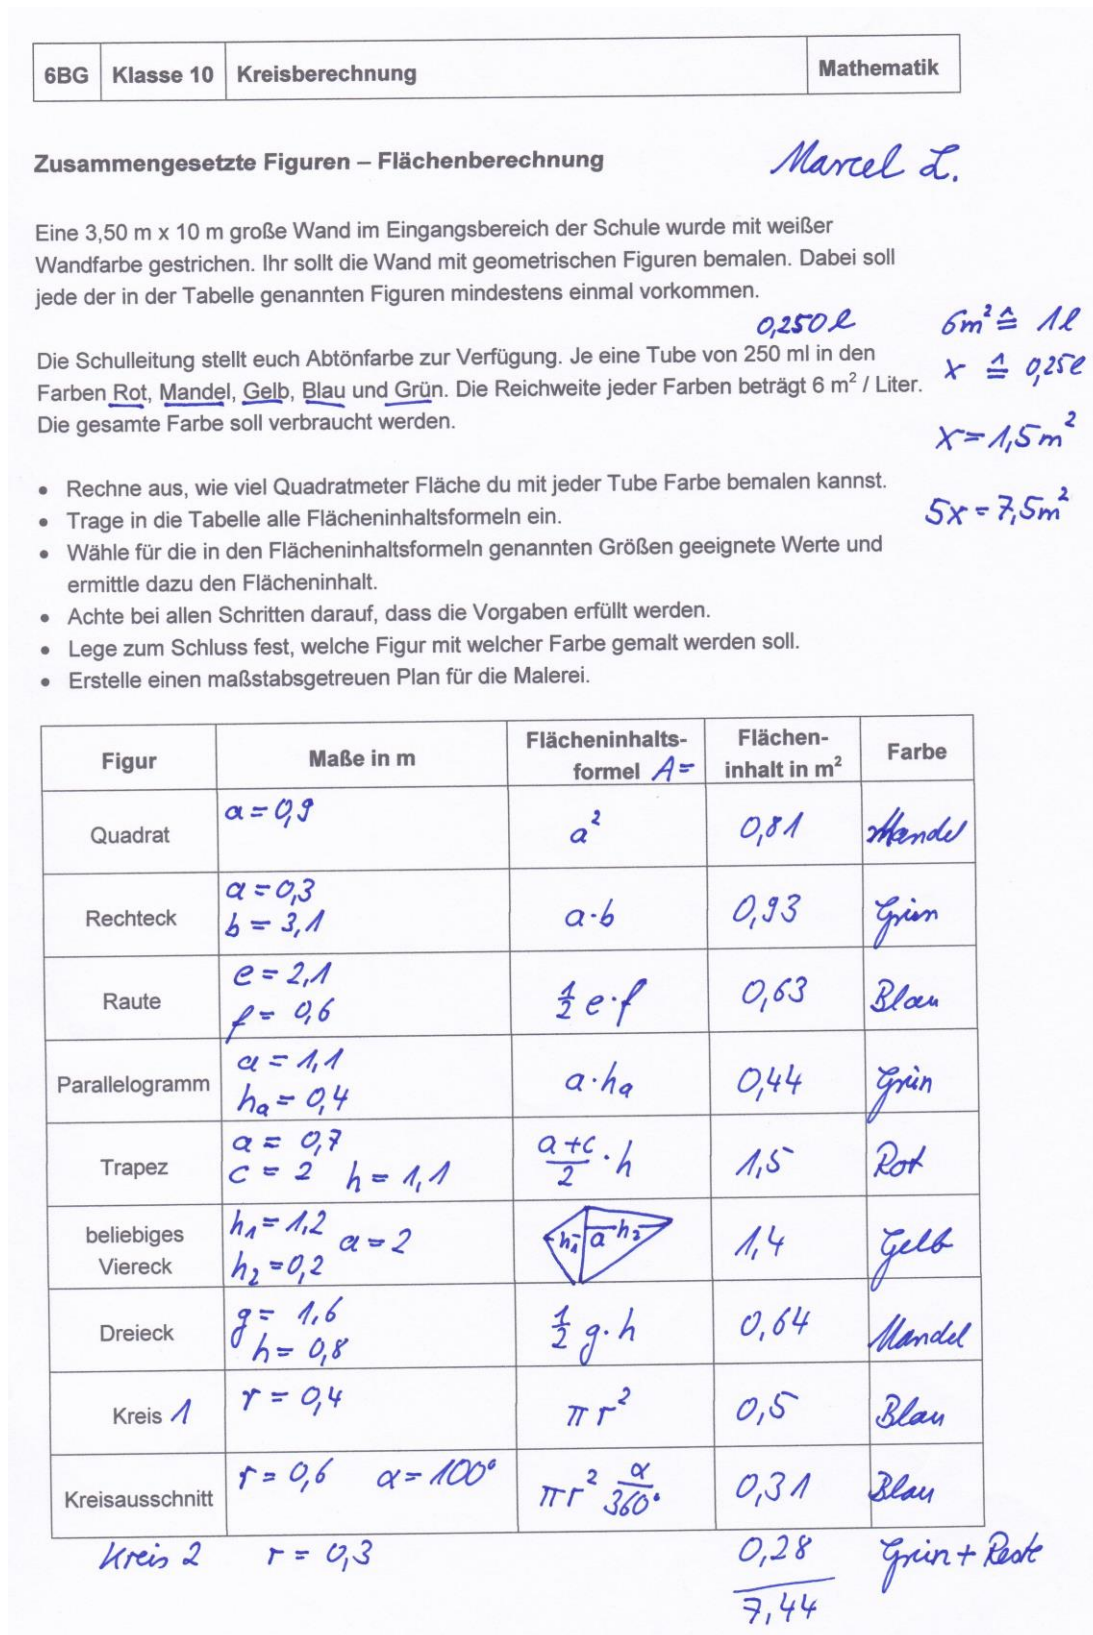 6BG Klasse 10 Kreisberechnung Mathematik
Zusammengesetzte Figuren – Flächenberechnung
Marcel L.
Eine 3,50 m x 10 m große Wand im Eingangsbereich der Schule wurde mit weißer
Wandfarbe gestrichen. Ihr sollt die Wand mit geometrischen Figuren bemalen. Dabei soll
jede der in der Tabelle genannten Figuren mindestens einmal vorkommen.
0,250l 6m² ≙ 1l
Die Schulleitung stellt euch Abtönfarbe zur Verfügung. Je eine Tube von 250 ml in den
x ≙ 0,25l
Farben Rot, Mandel, Gelb, Blau und Grün. Die Reichweite jeder Farben beträgt 6 m² / Liter.
Die gesamte Farbe soll verbraucht werden.
x = 1,5m²
Rechne aus, wie viel Quadratmeter Fläche du mit jeder Tube Farbe bemalen kannst.
5x = 7,5m²
Trage in die Tabelle alle Flächeninhaltsformeln ein.
Wähle für die in den Flächeninhaltsformeln genannten Größen geeignete Werte und
ermittle dazu den Flächeninhalt.
Achte bei allen Schritten darauf, dass die Vorgaben erfüllt werden.
Lege zum Schluss fest, welche Figur mit welcher Farbe gemalt werden soll.
Erstelle einen maßstabsgetreuen Plan für die Malerei.
Figur Maße in m Flächeninhalts- Flächen- Farbe
formel A= inhalt in m²
Quadrat a = 0,9 a² 0,81 Mandel
Rechteck a = 0,3 a·b 0,93 Grün
b = 3,1
Raute e = 2,1 ½ e·f 0,63 Blau
f = 0,6
Parallelogramm a = 1,1 a·hₐ 0,44 Grün
hₐ = 0,4
Trapez a = 0,7 (a+c)/2 · h 1,5 Rot
c = 2 h = 1,1
beliebiges h₁ = 1,2 a = 2 h₁ a h₂ 1,4 Gelb
Viereck h₂ = 0,2
Dreieck g = 1,6 ½ g·h 0,64 Mandel
h = 0,8
Kreis 1 r = 0,4 π r² 0,5 Blau
Kreisausschnitt r = 0,6 α = 100° π r² α/360° 0,31 Blau
Kreis 2 r = 0,3 0,28 Grün + Reste
7,44